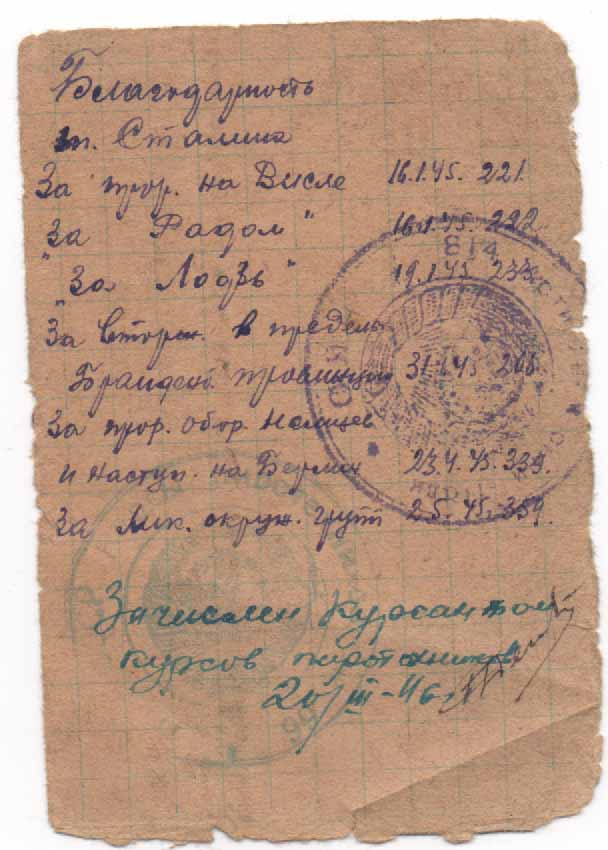 Благодарность
т. Сталина
За прор. на Висле 16.1.45. 221.
"За Радом" 16.1.45. 222
"За Лодзь" 19.1.45. 233
За вторж. в пределы
Бранденб. провинции 31.1.45
За прор. обор. немцев
и наступ. на Берлин 23.4.45. 339.
За лик. окруж. групп 2.5.45. 359.
Зачислен курсантом
курсов пиротехников
20/III-46